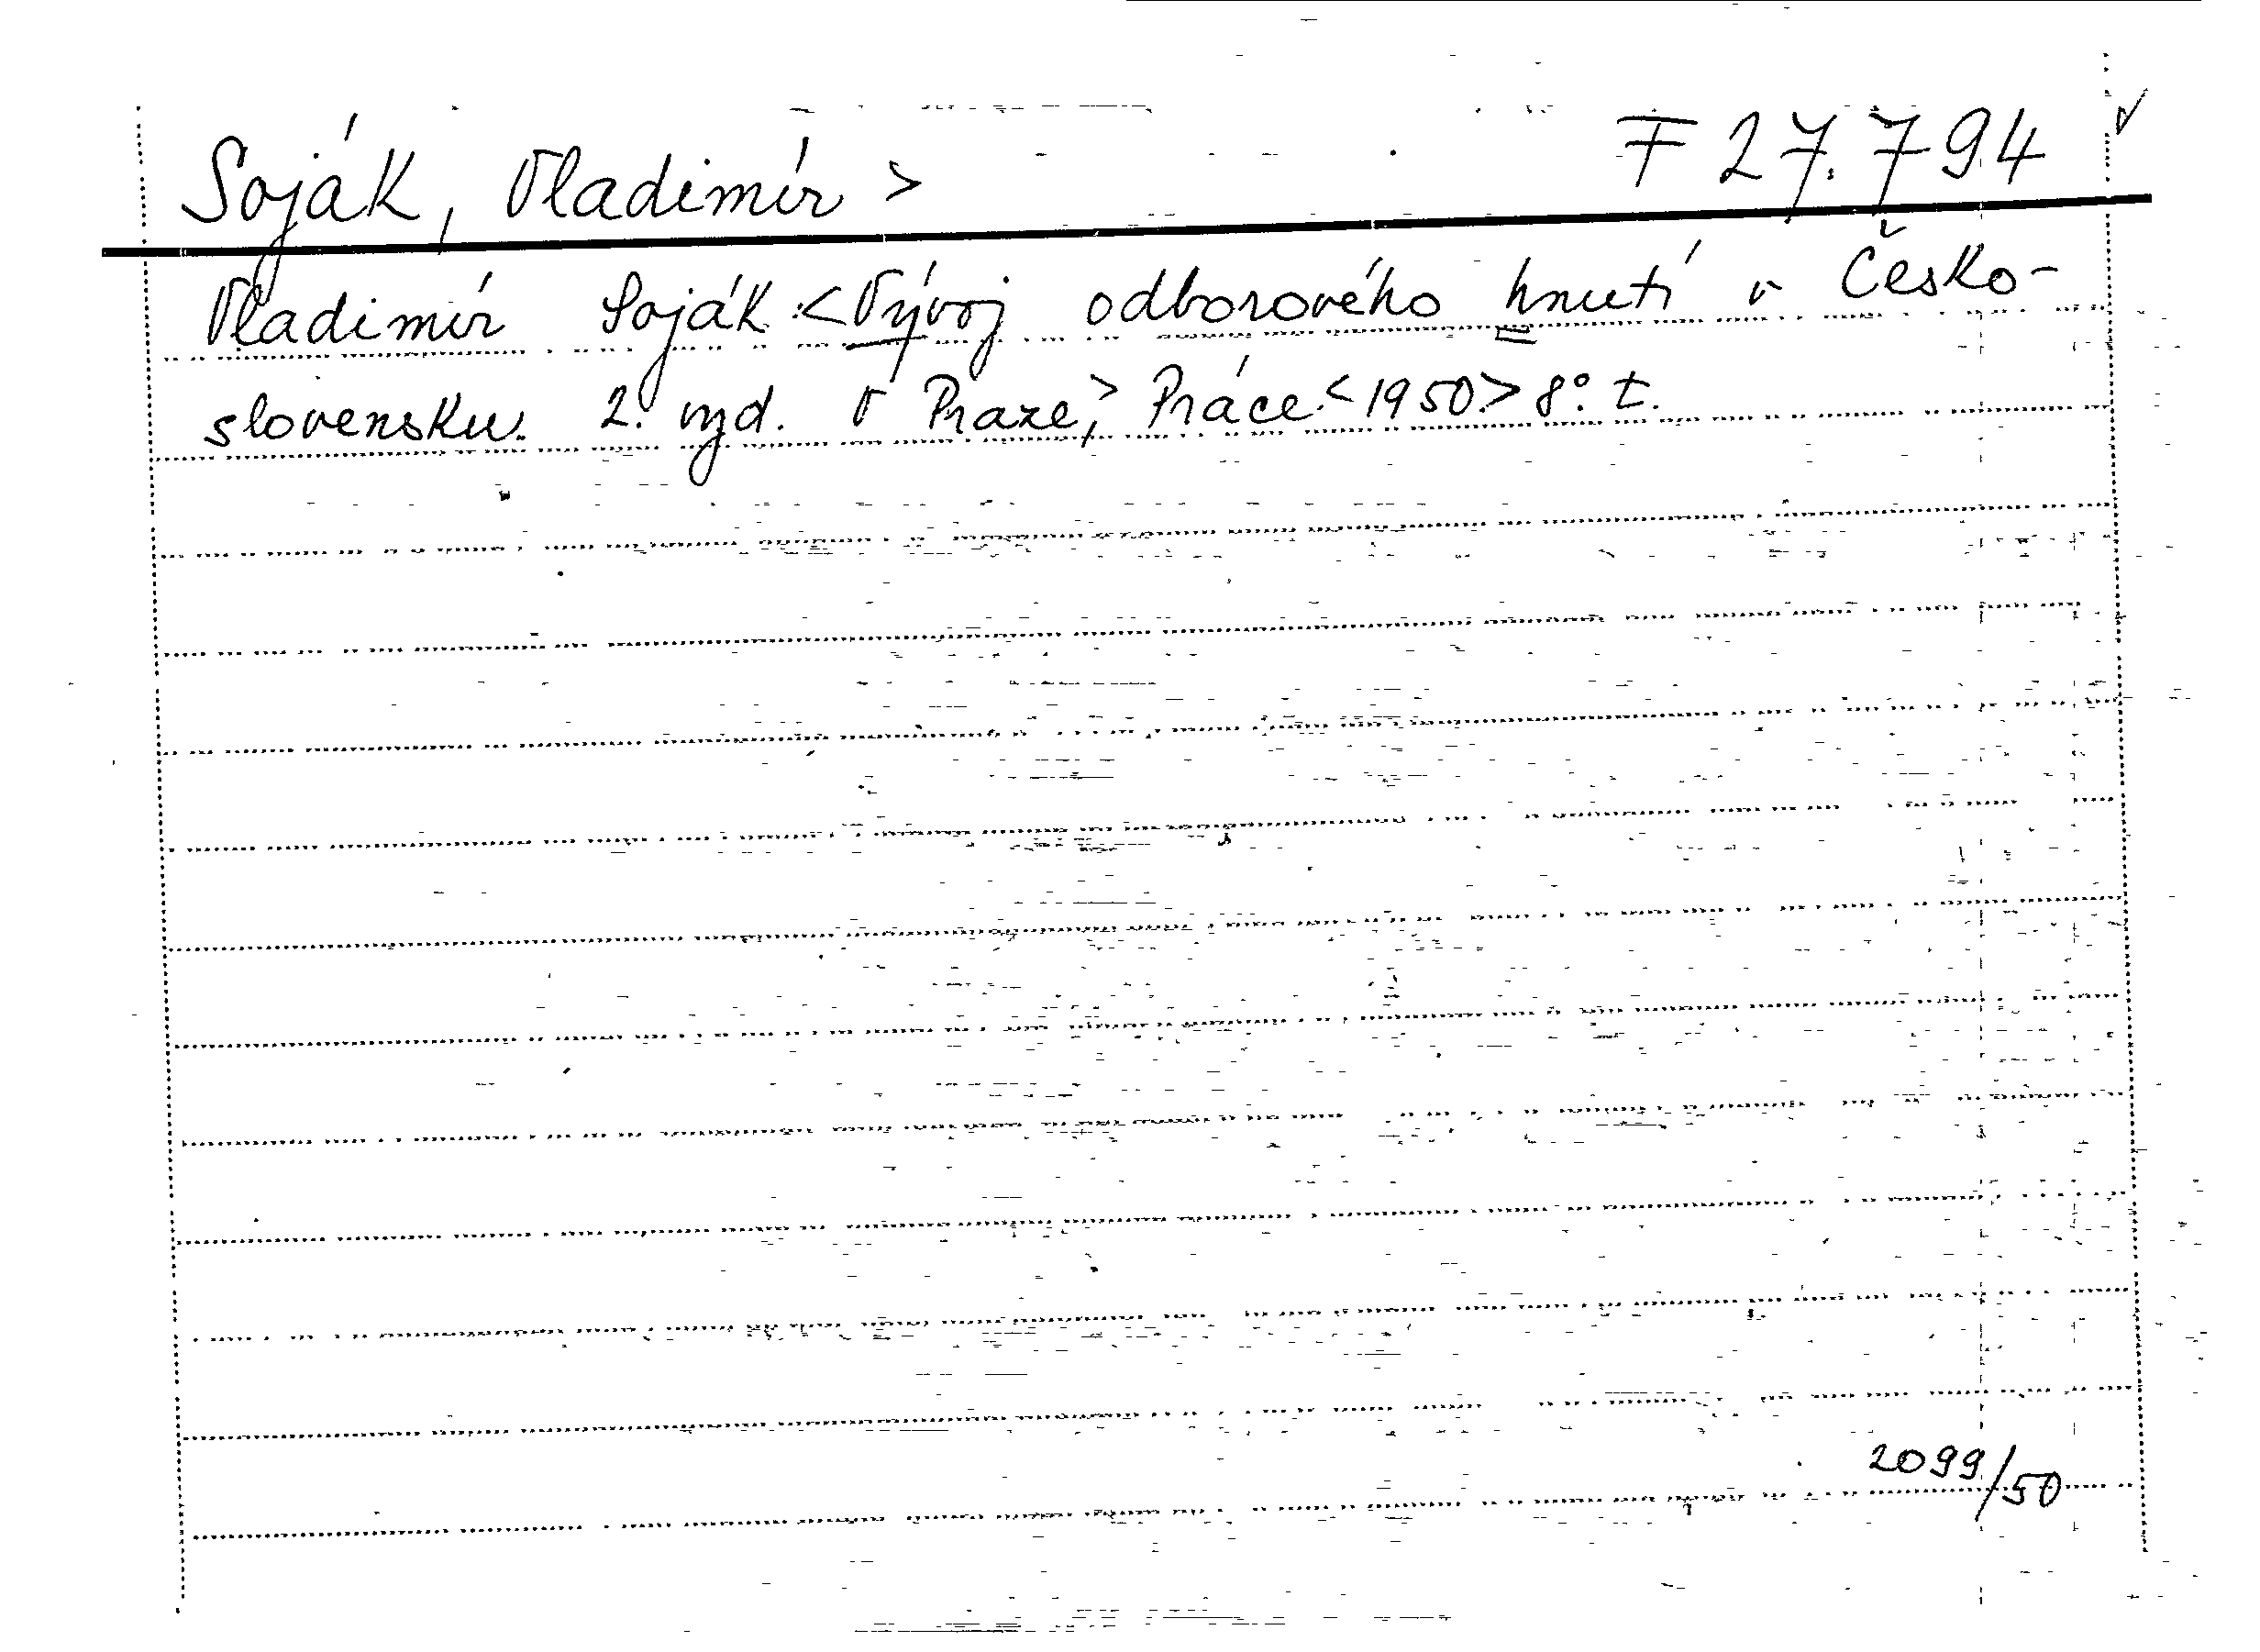 Soják, Vladimír > F 27.794 ✓
Vladimír Soják. < Vývoj odborového hnutí v Česko-
slovensku. 2. vyd. V Praze, > Práce. < 1950. > 8°. t.
2099/50